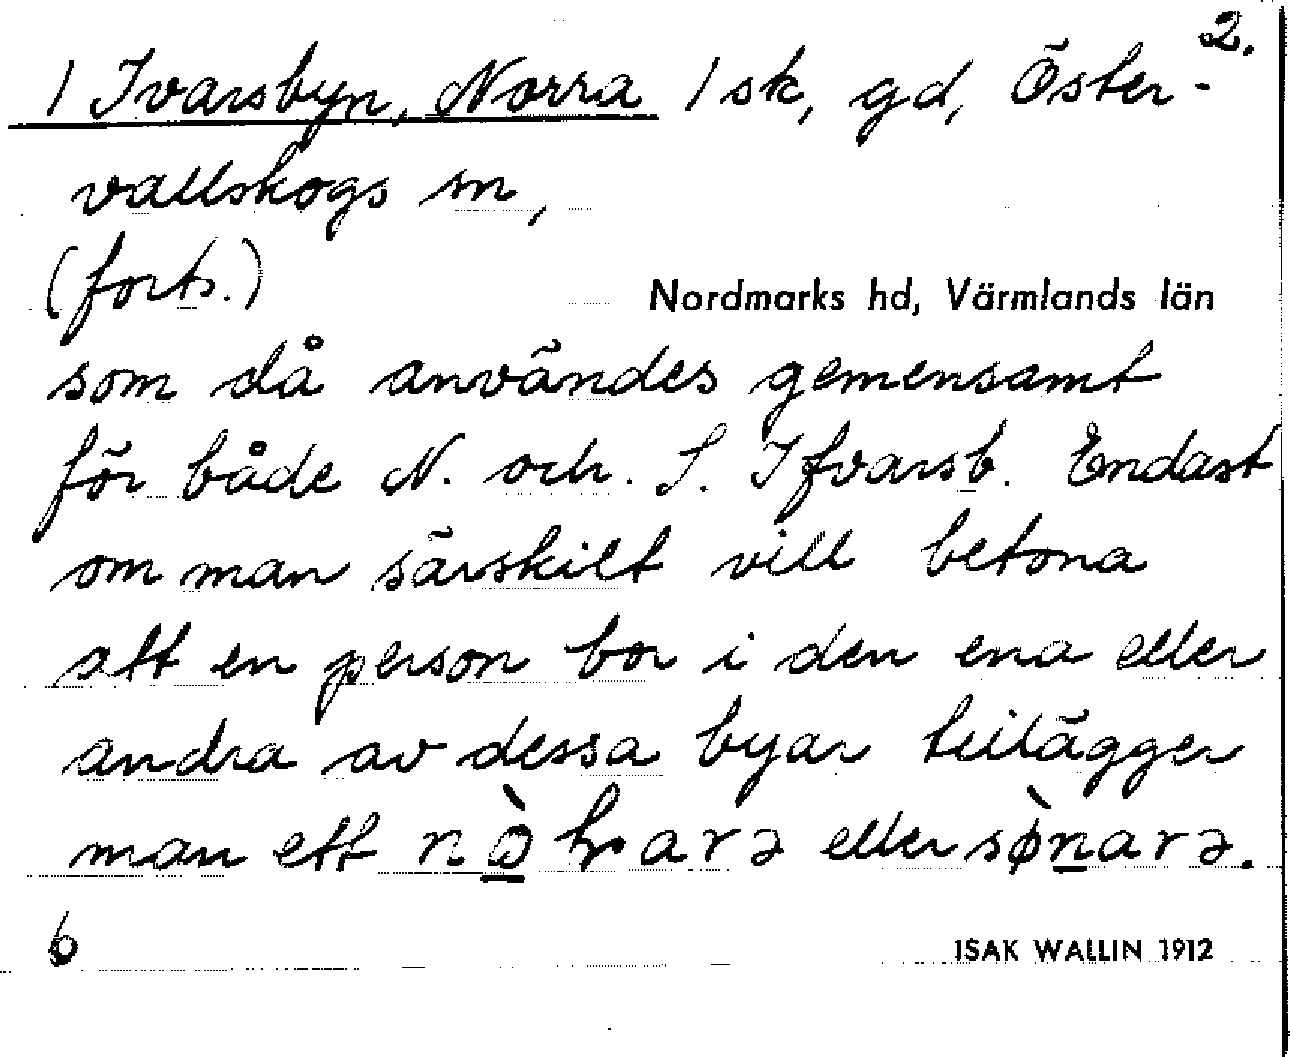 2.
/ Ivarsbyn, Norra / sk, gd, Öster-
vallskogs sn,
(forts.)
Nordmarks hd, Värmlands län
som då användes gemensamt
för både N. och. S. Ifvarsb. Endast
om man särskilt vill betona
att en person bor i den ena eller
andra av dessa byar tillägger
man ett eller sø̀narə.
6
ISAK WALLIN 1912